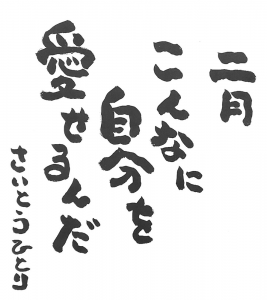 二月
こんなに
自分を
愛せるんだ
さいとうひとり